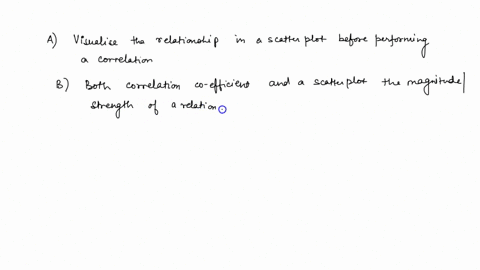 A) Visualise the relationship in a scatter plot before performing
a correlation
B) Both correlation co-efficient and a scatterplot the magnitude/
strength of a relation